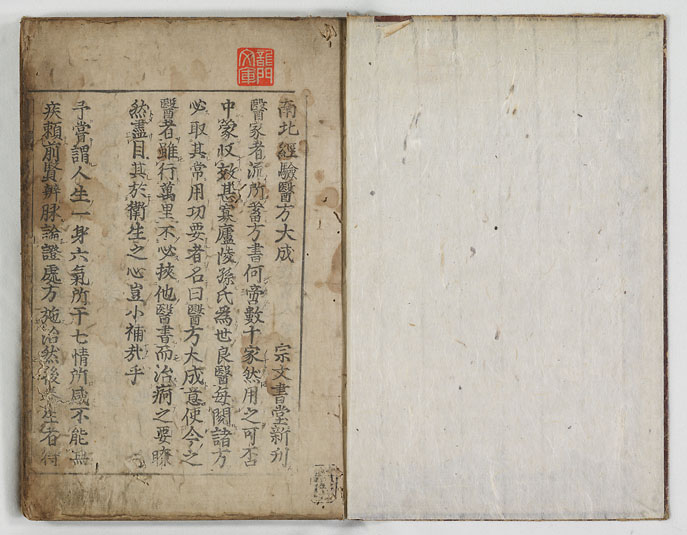 南北經驗醫方大成 宗文書堂新刊
醫家者流所蓄方書何啻數千家然用之可否
中蒙收效甚寡廬陵孫氏為世良醫每閱諸方
必取其常用功要者名曰醫方大成意使今之
醫者雖行萬里不必挾他醫書而治病之要瞭
然盡目其於衛生之心豈小補㢤乎
予嘗謂人生一身六氣所干七情所感不能無
疾賴前賢辨脉論證處方施治然後
龍門文庫